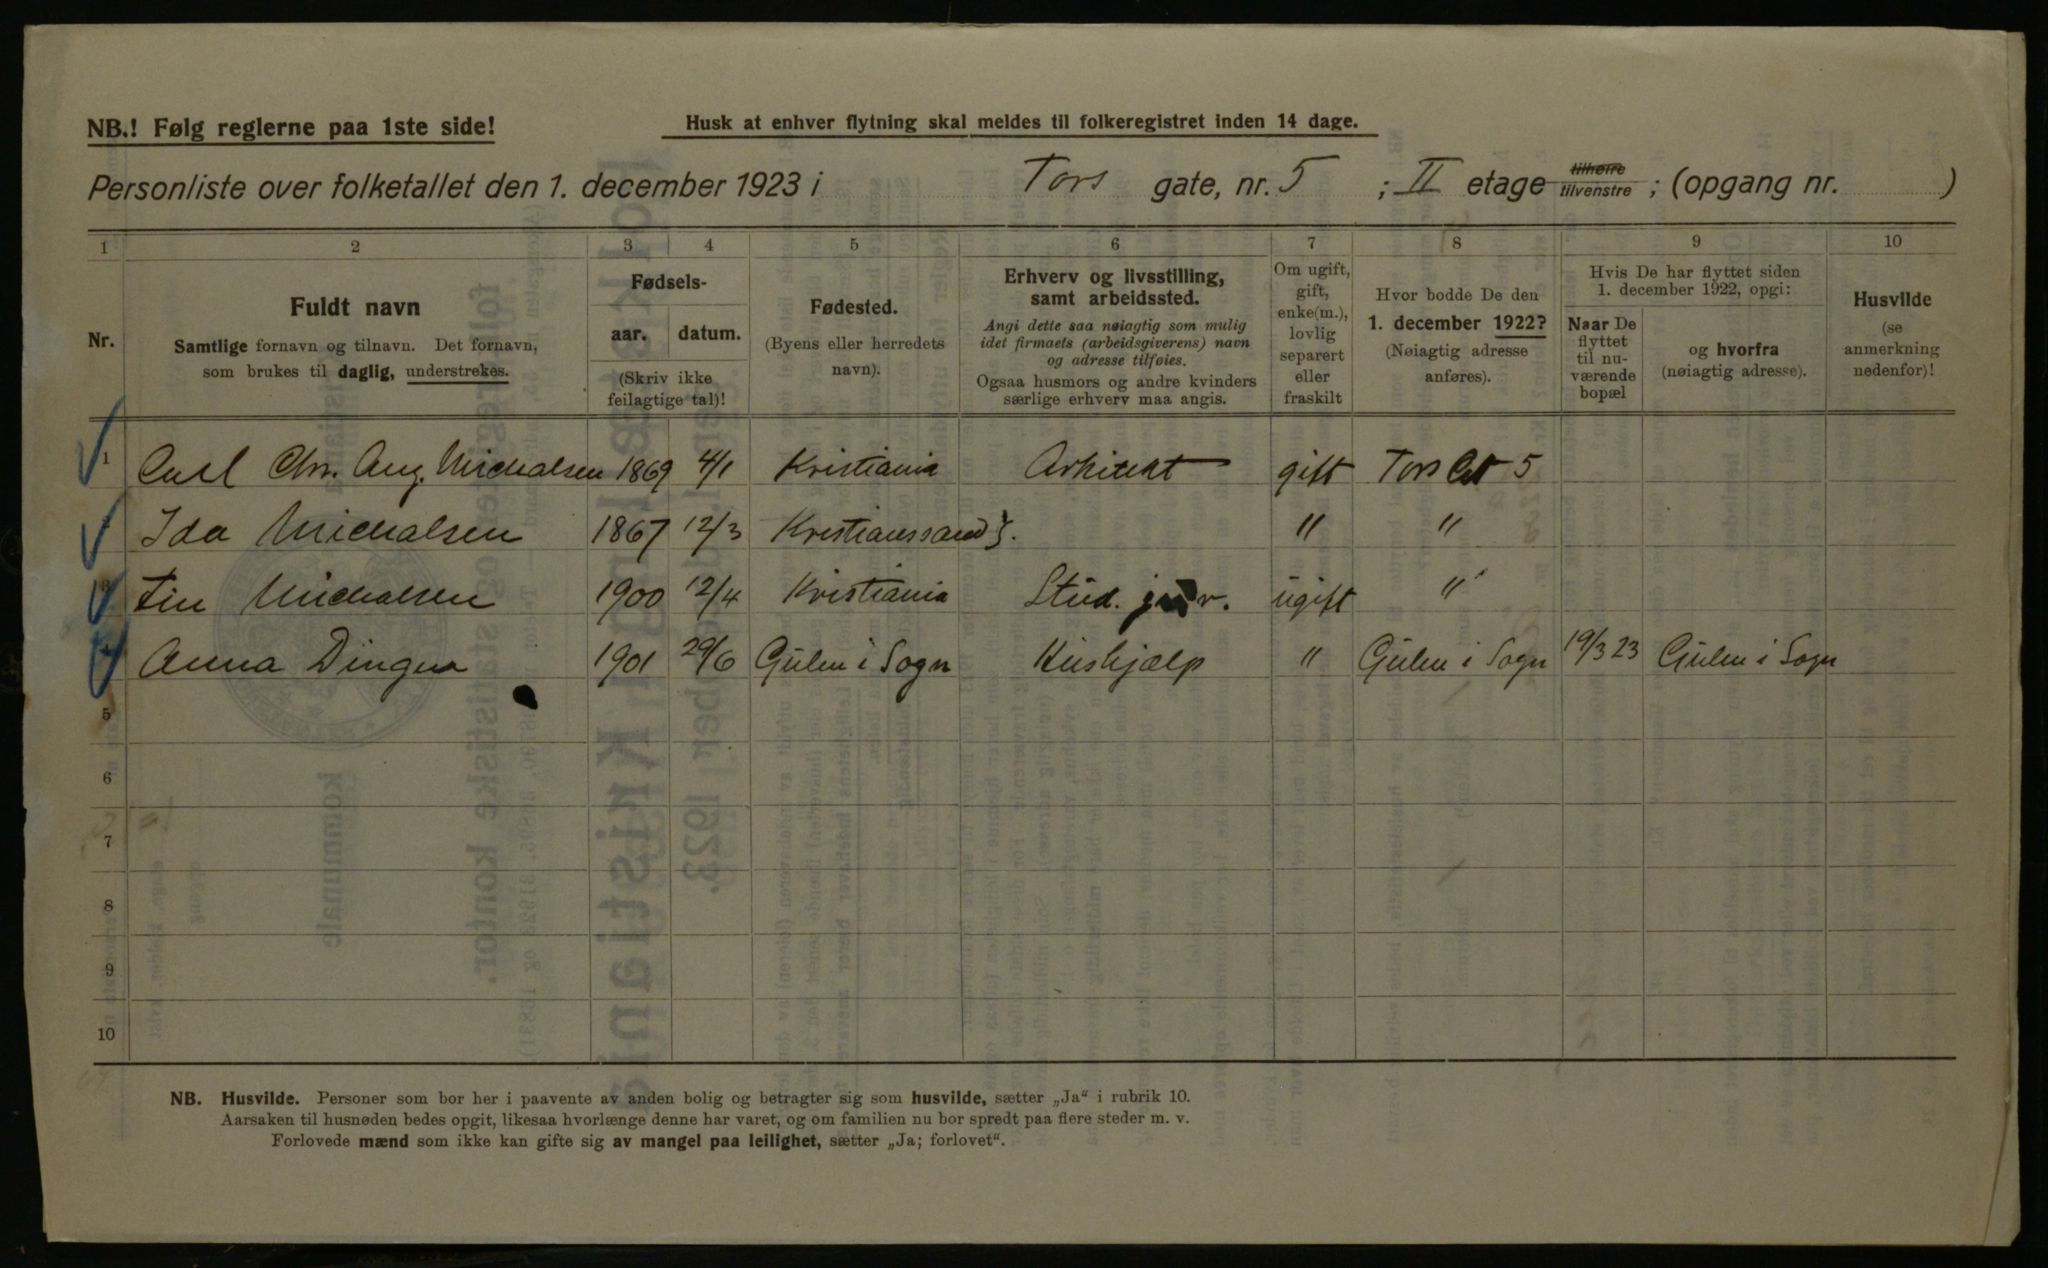 NB.! Følg reglerne paa 1ste side!
Husk at enhver flytning skal meldes til folkeregistret inden 14 dage.
Personliste over folketallet den 1. december 1923 i Tors gate, nr. 5 ; II etage tilhøire tilvenstre ; (opgang nr. )
1 2 3 4 5 6 7 8 9 10
Nr.
Fuldt navn
Samtlige fornavn og tilnavn. Det fornavn,
som brukes til daglig, understrekes.
Fødsels-
aar. datum.
(Skriv ikke
feilagtige tal)!
Fødested.
(Byens eller herredets
navn).
Erhverv og livsstilling,
samt arbeidssted.
Angi dette saa nøiagtig som mulig
idet firmaets (arbeidsgiverens) navn
og adresse tilføies.
Ogsaa husmors og andre kvinders
særlige erhverv maa angis.
Om ugift,
gift,
enke(m.),
lovlig
separert
eller
fraskilt
Hvor bodde De den
1. december 1922?
(Nøiagtig adresse
anføres).
Hvis De har flyttet siden
1. december 1922, opgi:
Naar De
flyttet
til nu-
værende
bopæl
og hvorfra
(nøiagtig adresse).
Husvilde
(se
anmerkning
nedenfor)!
1 Carl Chr. Aug. Michalsen 1869 4/1 Kristiania Arkitekt gift Tors Gt 5
Ida Michalsen 1867 12/3 Kristianssand S. " "
3 Fin Michalsen 1900 12/4 Kristiania Stud. jur. ugift "
4 Anna Dingen 1901 29/6 Gulen i Sogn Hushjælp " Gulen i Sogn 19/3 23 Gulen i Sogn
5
6
7
8
9
10
NB. Husvilde. Personer som bor her i paavente av anden bolig og betragter sig som husvilde, sætter „Ja" i rubrik 10.
Aarsaken til husnøden bedes opgit, likesaa hvorlænge denne har varet, og om familien nu bor spredt paa flere steder m. v.
Forlovede mænd som ikke kan gifte sig av mangel paa leilighet, sætter „Ja; forlovet".